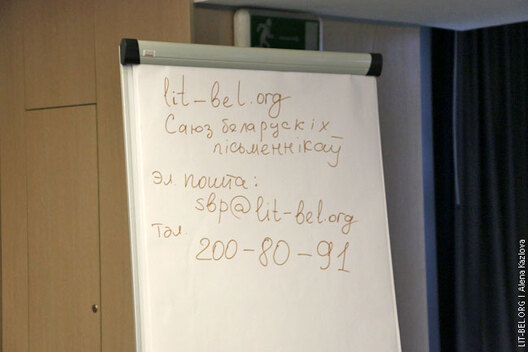 lit-bel.org
Саюз беларускіх
пісьменнікаў
Эл. пошта:
sbp@lit-bel.org
Тэл.
200-80-91
LIT-BEL.ORG | Alena Kazlova